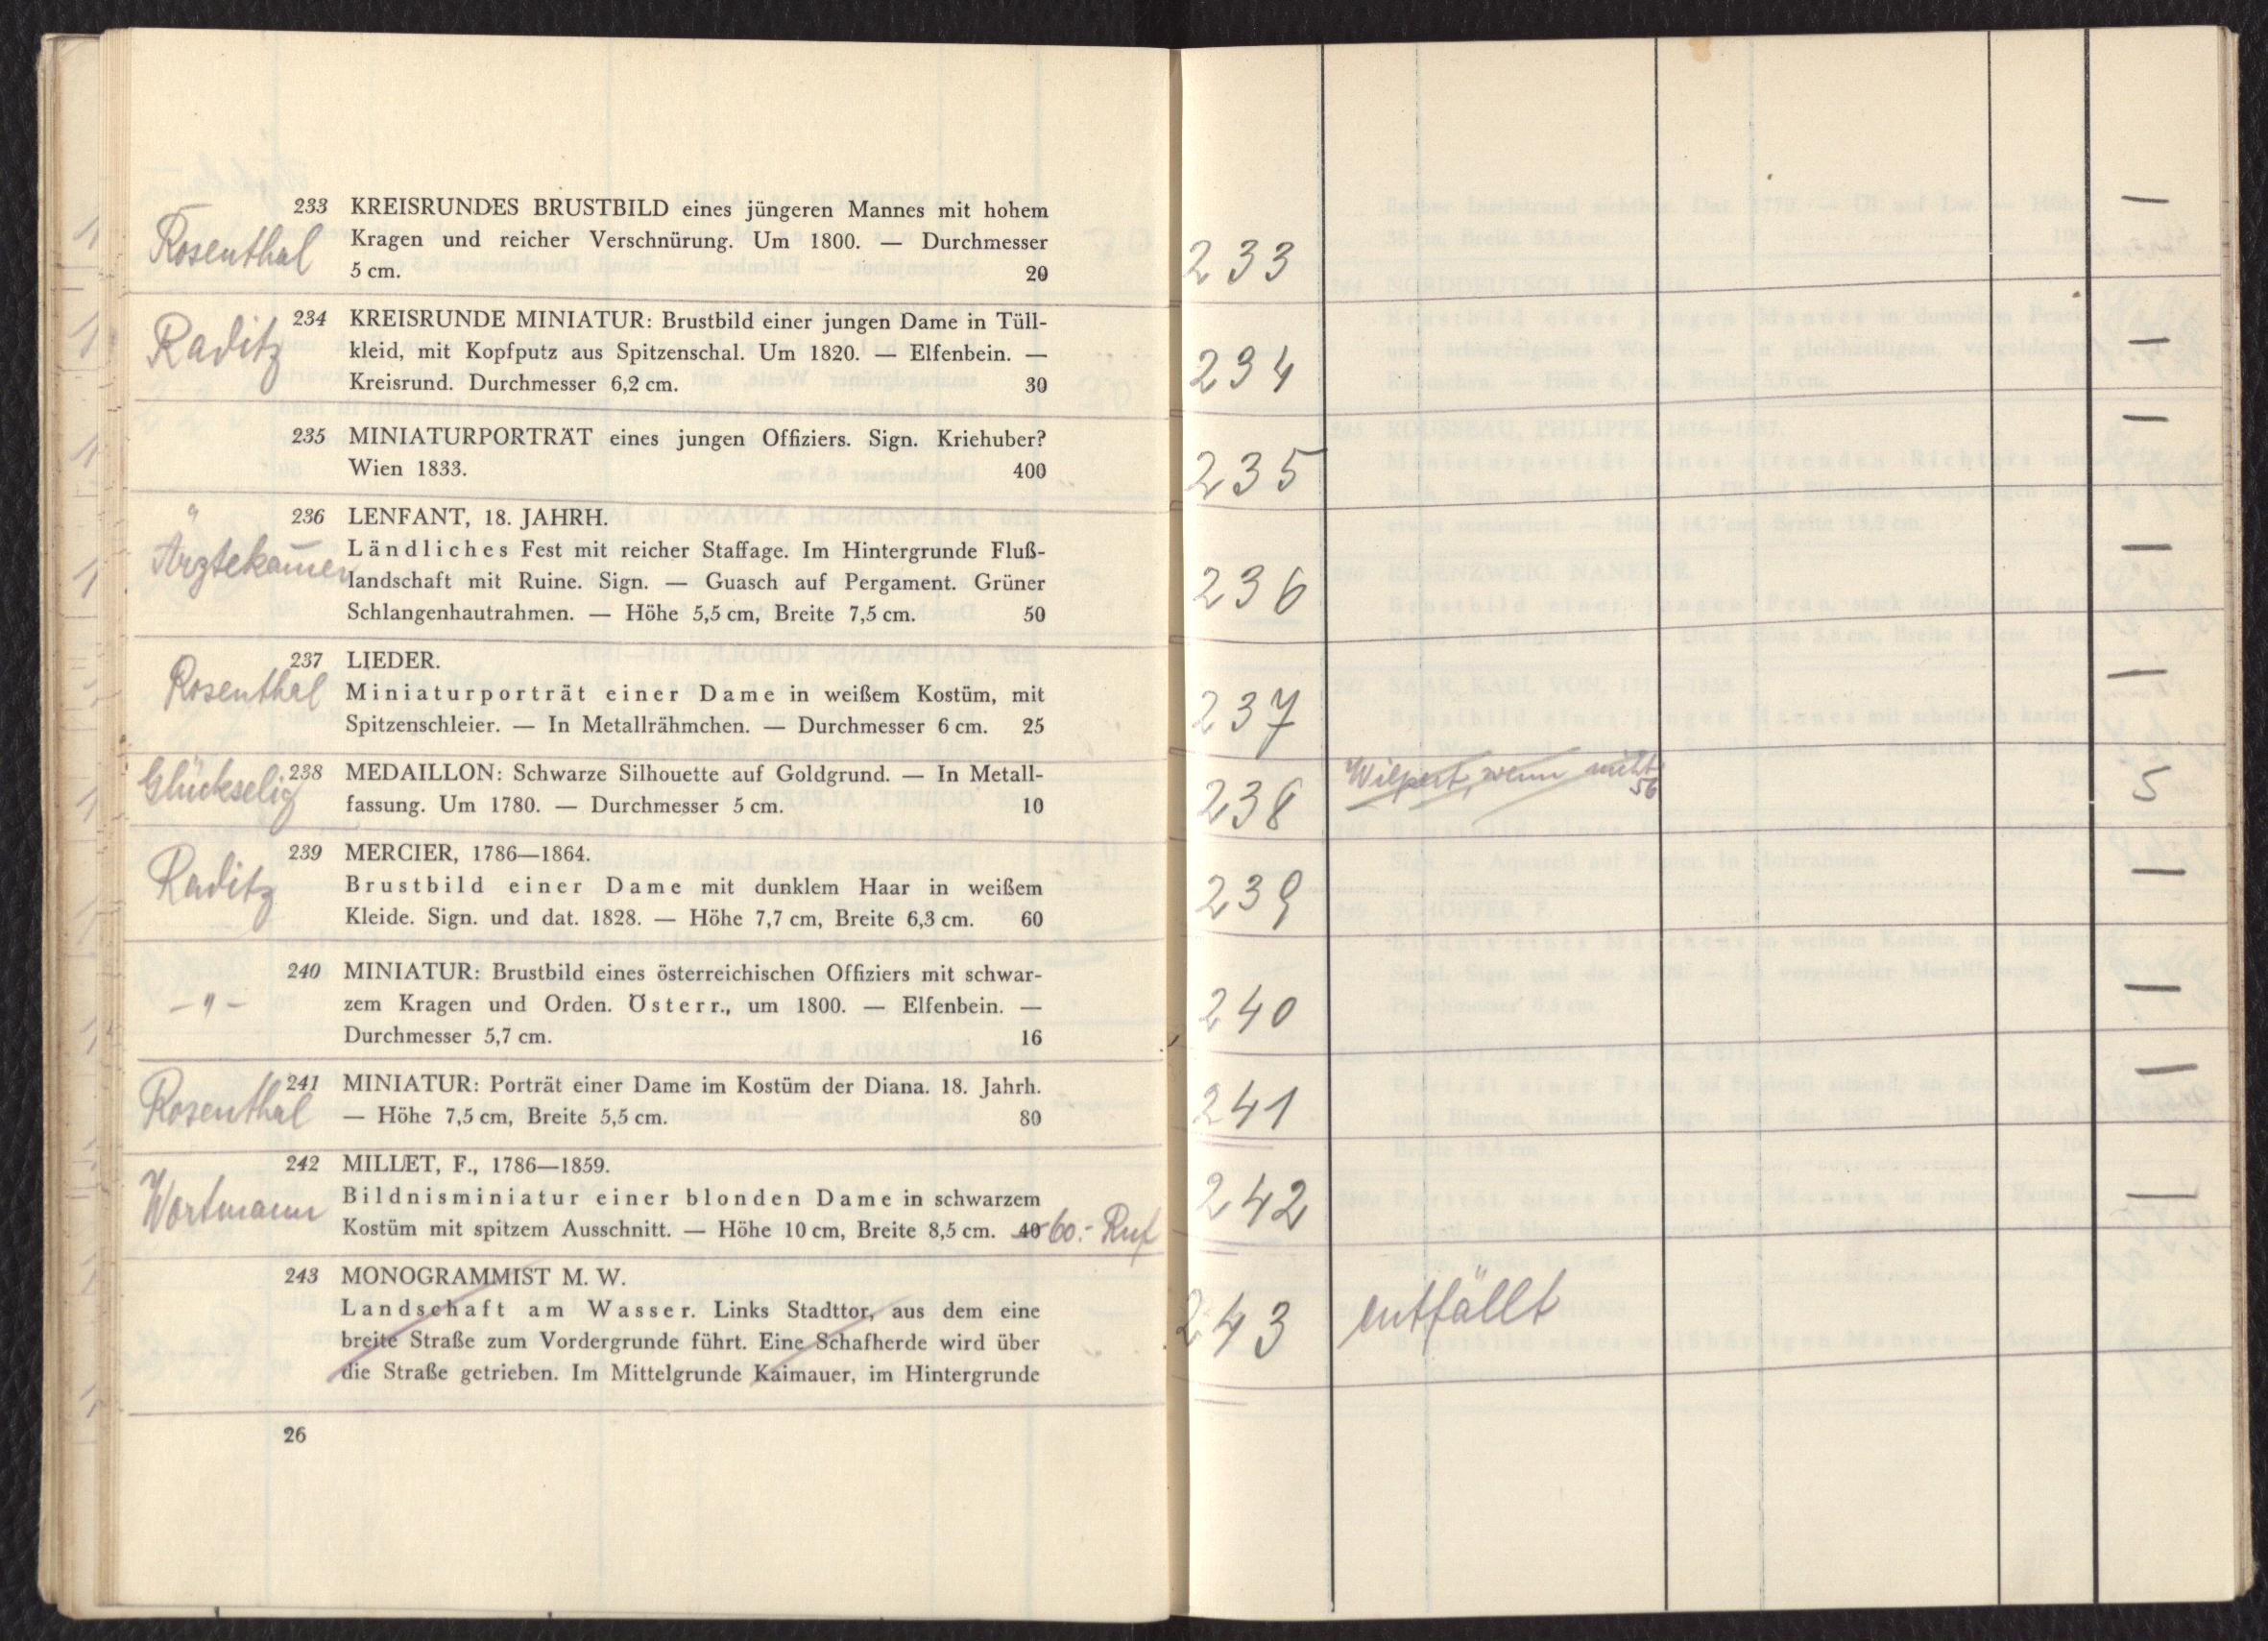 Rosenthal
233 KREISRUNDES BRUSTBILD eines jüngeren Mannes mit hohem
Kragen und reicher Verschnürung. Um 1800. — Durchmesser
5 cm. 20
Raditz
234 KREISRUNDE MINIATUR: Brustbild einer jungen Dame in Tüll-
kleid, mit Kopfputz aus Spitzenschal. Um 1820. — Elfenbein. —
Kreisrund. Durchmesser 6,2 cm. 30
235 MINIATURPORTRÄT eines jungen Offiziers. Sign. Kriehuber?
Wien 1833. 400
Ärztekam̄er
236 LENFANT, 18. JAHRH.
Ländliches Fest mit reicher Staffage. Im Hintergrunde Fluß-
landschaft mit Ruine. Sign. — Guasch auf Pergament. Grüner
Schlangenhautrahmen. — Höhe 5,5 cm, Breite 7,5 cm. 50
Rosenthal
237 LIEDER.
Miniaturporträt einer Dame in weißem Kostüm, mit
Spitzenschleier. — In Metallrähmchen. — Durchmesser 6 cm. 25
Glückselig
238 MEDAILLON: Schwarze Silhouette auf Goldgrund. — In Metall-
fassung. Um 1780. — Durchmesser 5 cm. 10
Raditz
239 MERCIER, 1786—1864.
Brustbild einer Dame mit dunklem Haar in weißem
Kleide. Sign. und dat. 1828. — Höhe 7,7 cm, Breite 6,3 cm. 60
— " —
240 MINIATUR: Brustbild eines österreichischen Offiziers mit schwar-
zem Kragen und Orden. Österr., um 1800. — Elfenbein. —
Durchmesser 5,7 cm. 16
Rosenthal
241 MINIATUR: Porträt einer Dame im Kostüm der Diana. 18. Jahrh.
— Höhe 7,5 cm, Breite 5,5 cm. 80
Wortmann
242 MILLET, F., 1786—1859.
Bildnisminiatur einer blonden Dame in schwarzem
Kostüm mit spitzem Ausschnitt. — Höhe 10 cm, Breite 8,5 cm. 40 60.- Ruf
243 MONOGRAMMIST M. W.
Landschaft am Wasser. Links Stadttor, aus dem eine
breite Straße zum Vordergrunde führt. Eine Schafherde wird über
die Straße getrieben. Im Mittelgrunde Kaimauer, im Hintergrunde
26
233 —
234 —
235 —
236 —
237 —
238 Wilpert, wenn nicht 56 5
239 —
240 —
241 —
242 —
243 entfällt